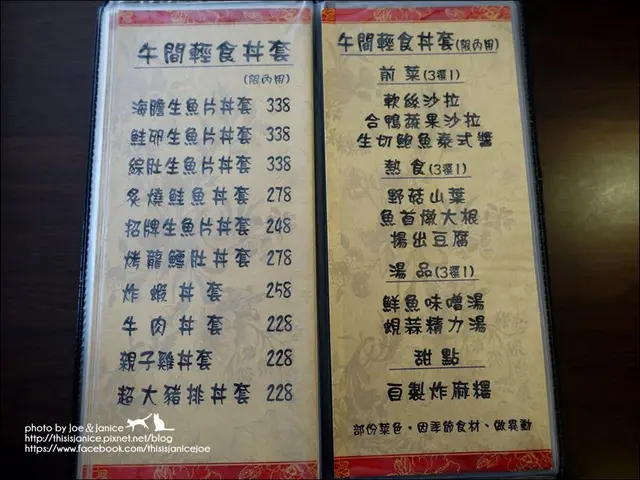 午間輕食丼套
(限內用)
海膽生魚片丼套 338
鮭卵生魚片丼套 338
綜肚生魚片丼套 338
炙燒鮭魚丼套 278
招牌生魚片丼套 248
烤龍鱈肚丼套 278
炸蝦丼套 258
牛肉丼套 228
親子雞丼套 228
超大豬排丼套 228
午間輕食丼套(限內用)
前菜(3擇1)
軟絲沙拉
合鴨蔬果沙拉
生切鮑魚泰式醬
熱食(3擇1)
野菇山葉
魚首燉大根
揚出豆腐
湯品(3擇1)
鮮魚味噌湯
蜆蒜精力湯
甜點
自製炸麻糬
部份菜色，因季節食材、做異動
photo by Joe & Janice
http://thisisjanice.pixnet.net/blog
https://www.facebook.com/thisisjanicejoe